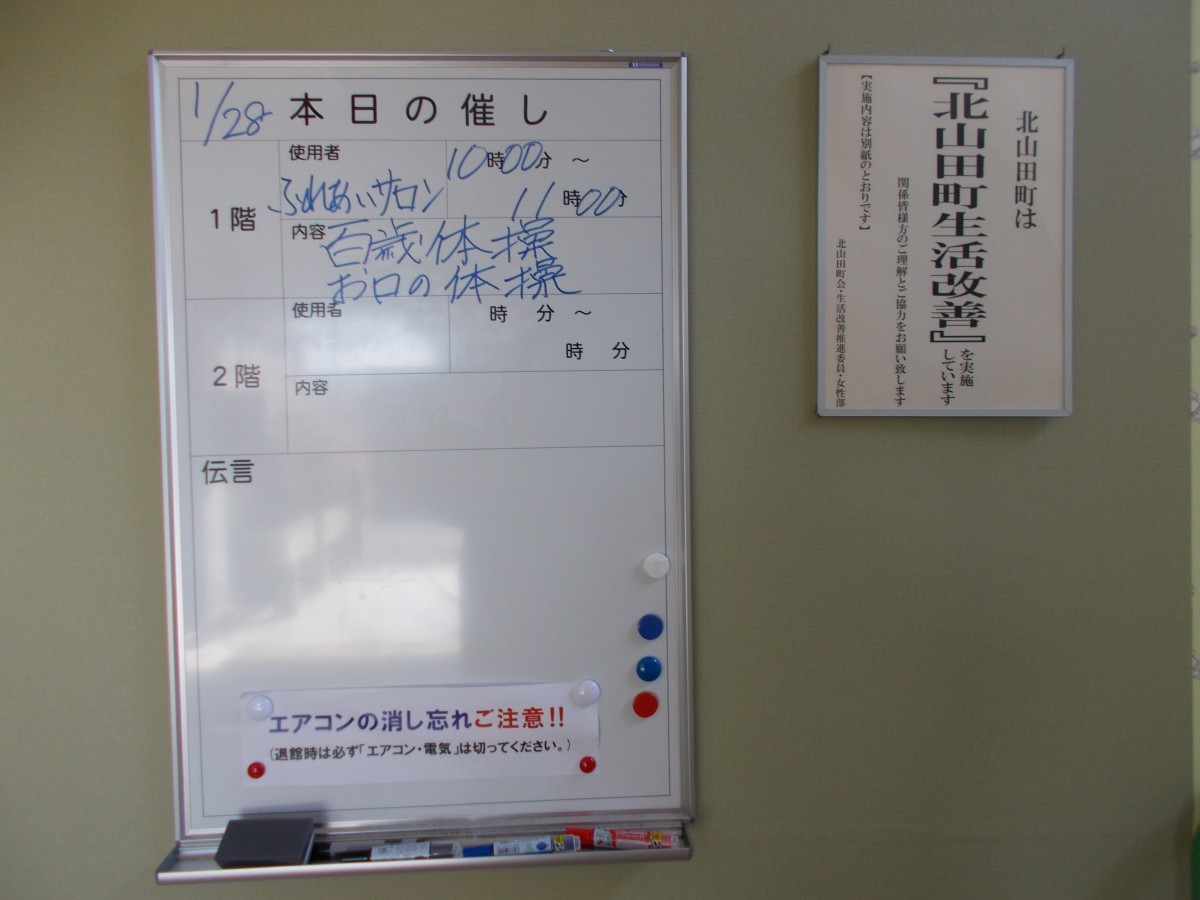 1/28 本日の催し
1階
使用者
ふれあいサロン
10時00分 ～
11時00分
内容
百歳体操
お口の体操
2階
使用者
時 分 ～
時 分
内容
伝言
エアコンの消し忘れご注意!!
(退館時は必ず｢エアコン･電気｣は切ってください。)
北山田町は
『北山田町生活改善』を実施しています
関係皆様方のご理解とご協力をお願い致します
【実施内容は別紙のとおりです】
北山田町会・生活改善推進委員・女性部